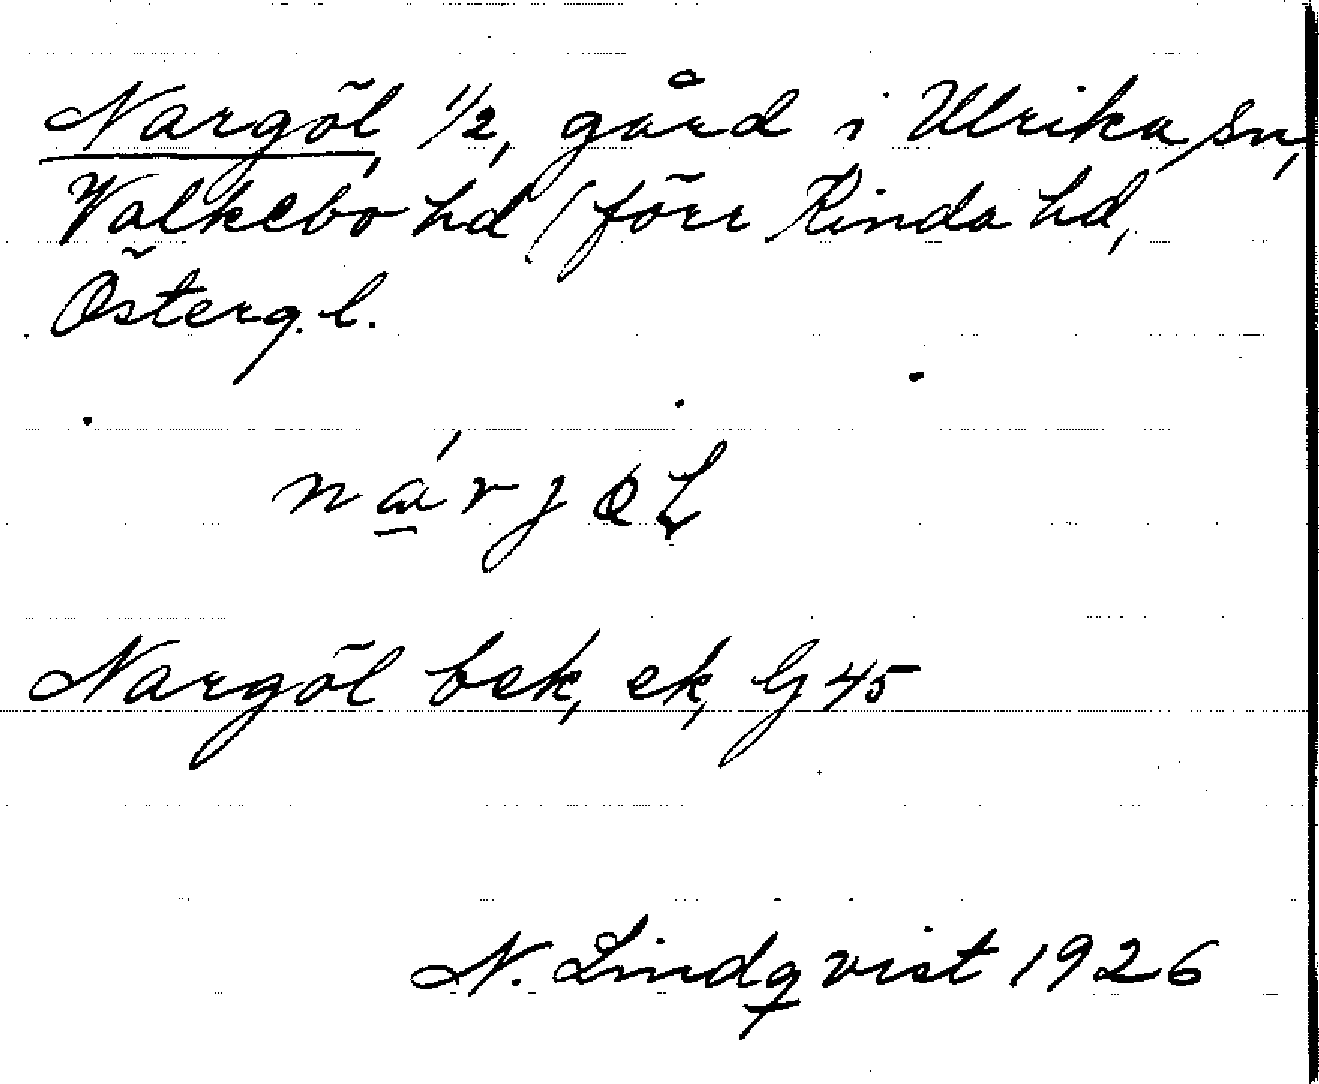 Nargöl, 1/2, gård i Ulrika sn,
Valkebo hd (förr Kinda hd,
Österg. l.
nárjøL
Nargöl bek, ek, G 45
N. Lindqvist 1926